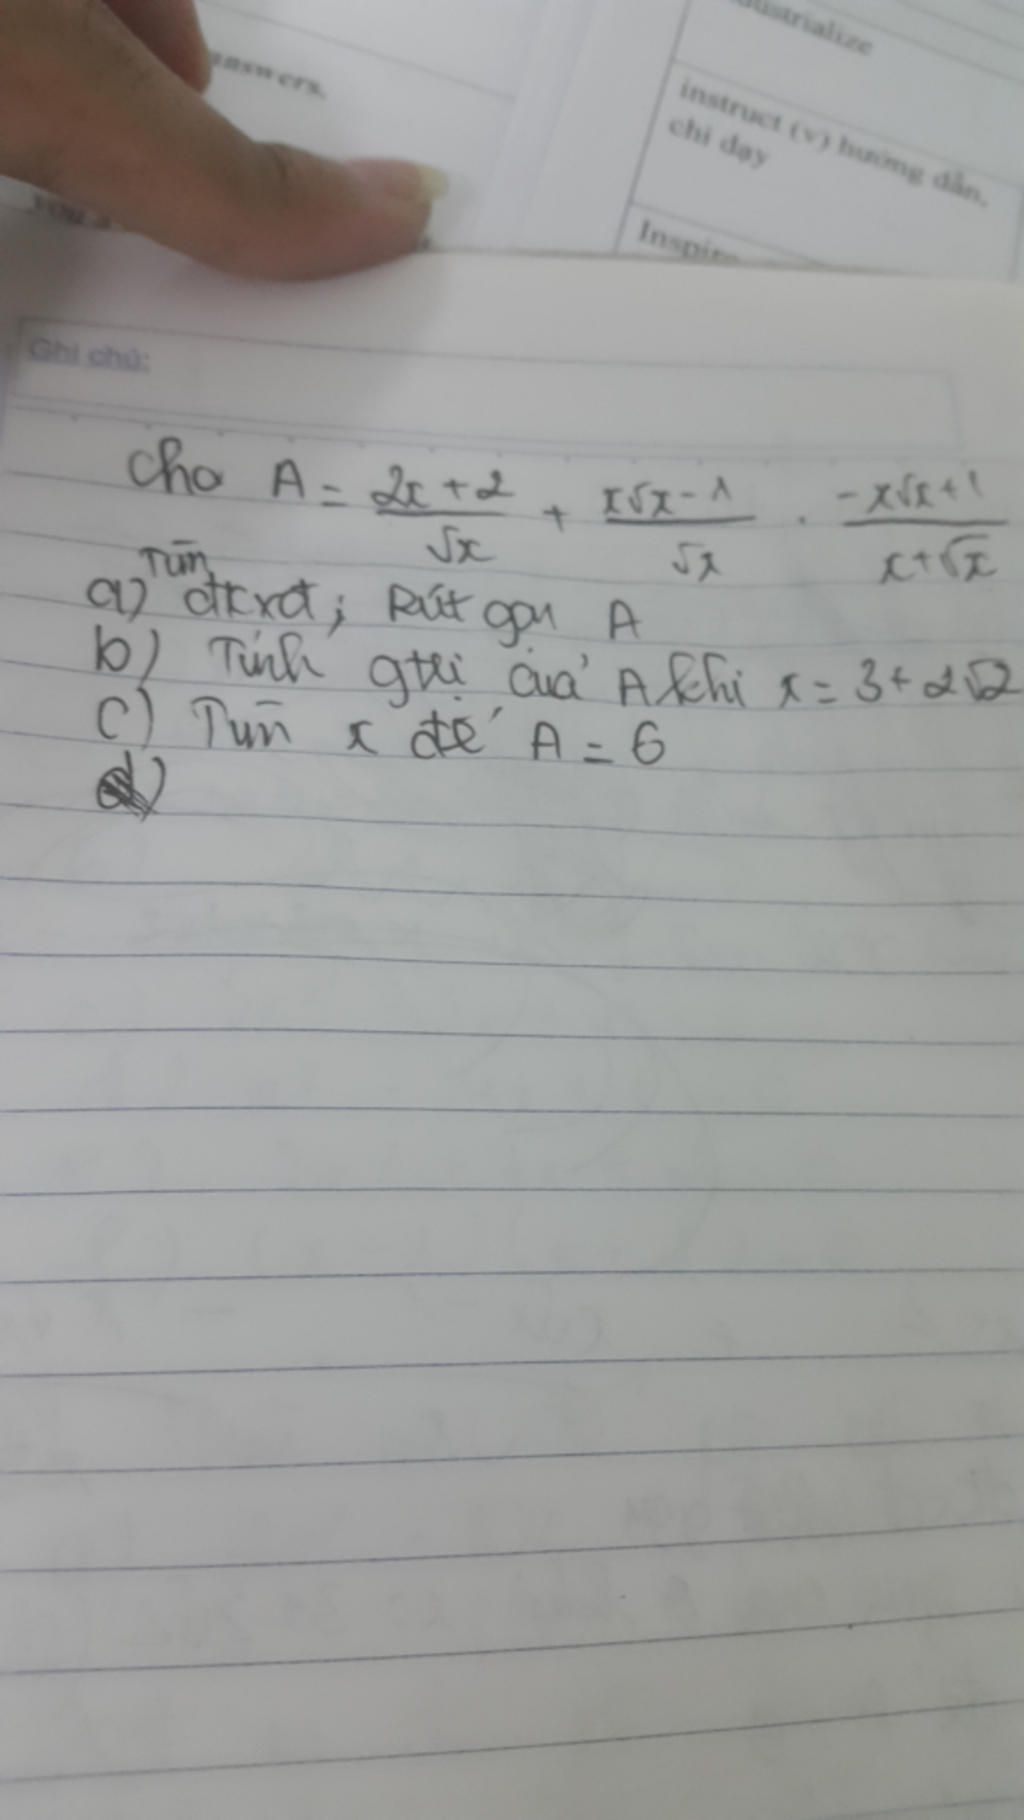 answers.
dustrialize
instruct (v) hướng dẫn,
chỉ dạy
Inspire
Ghi chú:
Cho A = \frac{2x+2}{\sqrt{x}} + \frac{x\sqrt{x}-1}{\sqrt{x}} . \frac{-x\sqrt{x}+1}{x+\sqrt{x}}
Tìm
a) đkxđ; Rút gọn A
b) Tính gtrị của A khi x = 3+2√2
c) Tìm x để A = 6
d)